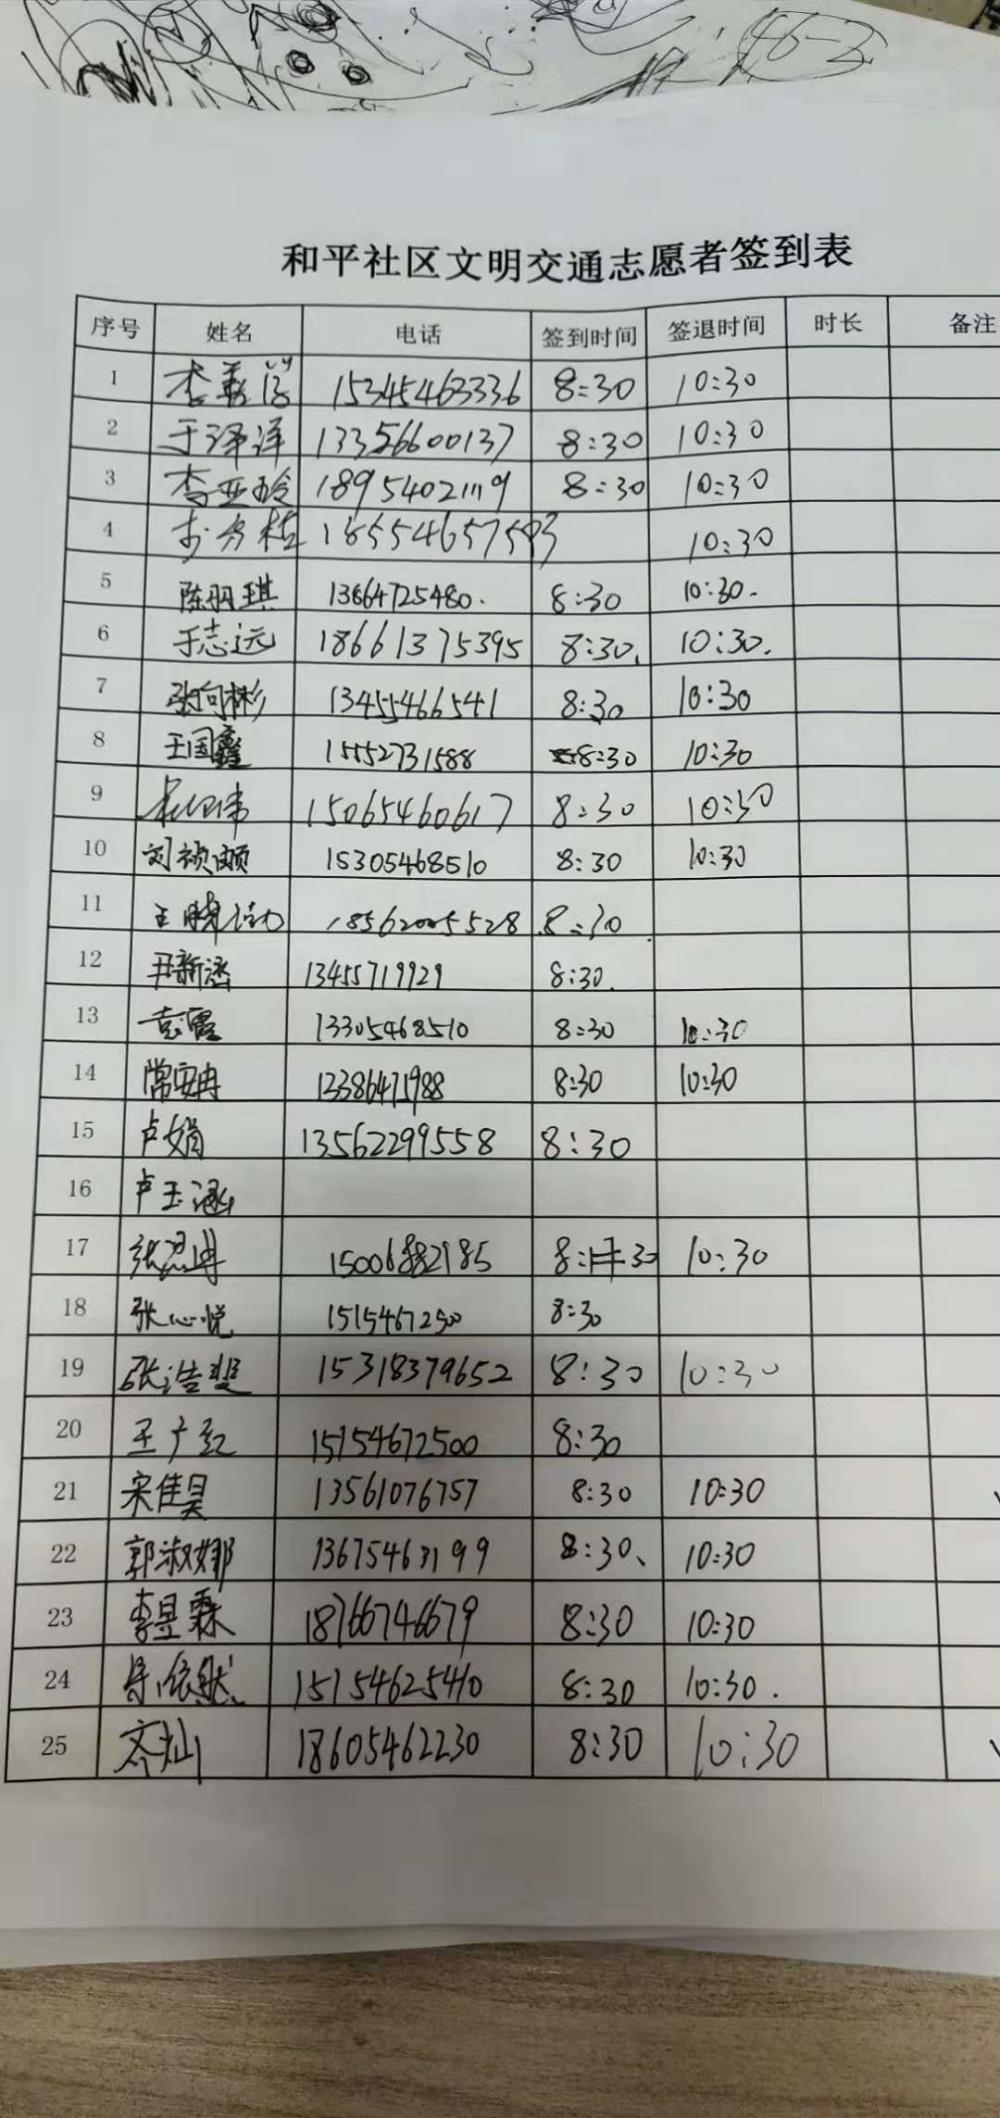 46-2
和平社区文明交通志愿者签到表
序号 姓名 电话 签到时间 签退时间 时长 备注
1 李 15345463336 8:30 10:30
2 于泽洋 13356600137 8:30 10:30
3 李亚玲 18954021119 8:30 10:30
4 18554657593 10:30
5 陈羽琪 13864725480. 8:30 10:30.
6 于志远 18661375395 8:30. 10:30.
7 张向彬 13455466541 8:30 10:30
8 王国鑫 15552731588 8:30 10:30
9 15065460617 8:30 10:30
10 刘祯颐 15305468510 8:30 10:30
11 王晓 18562005528 8:30
12 尹新涵 13455719929 8:30.
13 袁霞 13305468510 8:30 10:30
14 常安冉 13386471988 8:30 10:30
15 卢娟 13562299558 8:30
16 卢玉涵
17 张 15006882185 8: 30 10:30
18 张心悦 1515467250 8:30
19 张浩斐 15318379652 8:30 10:30
20 王广红 15154672500 8:30
21 宋佳昊 13561076757 8:30 10:30
22 郭淑娜 13675463199 8:30、 10:30
23 李昱霖 18766746679 8:30 10:30
24 依然 15154625410 8:30 10:30.
25 齐灿 18605462230 8:30 10:30